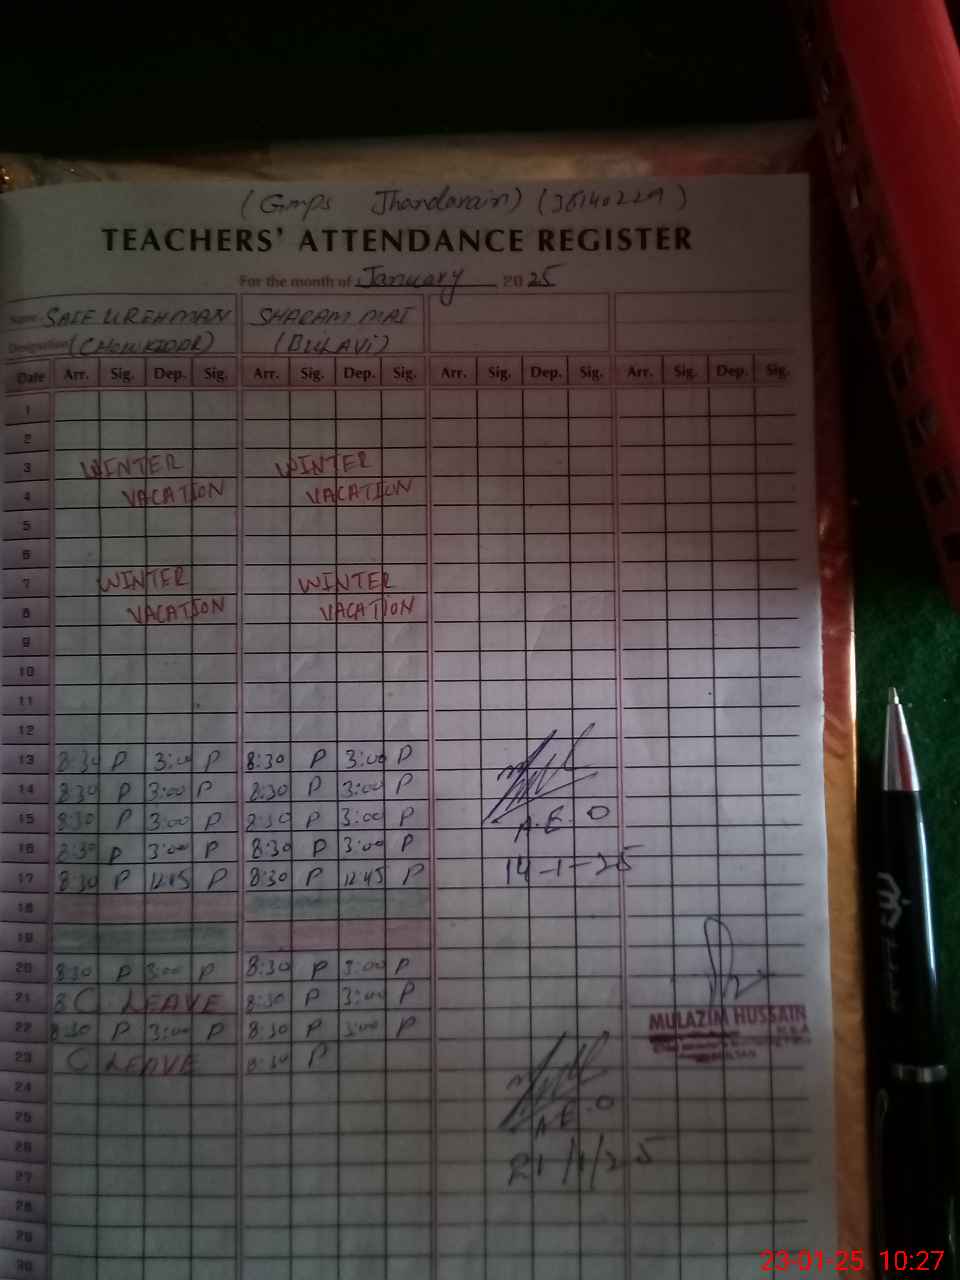 (Gmps Jhandarain) (36140229)
TEACHERS' ATTENDANCE REGISTER
For the month of January 2025
Name SAIF UREHMAN SHARAM MAI
Designation (CHOWKIDAR) (BULAVI)
Date Arr. Sig. Dep. Sig. Arr. Sig. Dep. Sig. Arr. Sig. Dep. Sig. Arr. Sig. Dep. Sig.
1
2
3 WINTER WINTER
4 VACATION VACATION
5
6
7 WINTER WINTER
8 VACATION VACATION
9
10
11
12
13 8:30 P 3:00 P 8:30 P 3:00 P
14 8:30 P 3:00 P 8:30 P 3:00 P
15 8:30 P 3:00 P 8:30 P 3:00 P A.E.O
16 8:30 P 3:00 P 8:30 P 3:00 P
17 8:30 P 12:45 P 8:30 P 12:45 P 14-1-25
18
19
20 8:30 P 3:00 P 8:30 P 3:00 P
21 8 C LEAVE 8:30 P 3:00 P
22 8:30 P 3:00 P 8:30 P 3:00 P MULAZIM HUSSAIN
23 C LEAVE 8:30 P
24
25 A.E.O
26
27 21/1/25
28
29
30
23-01-25 10:27